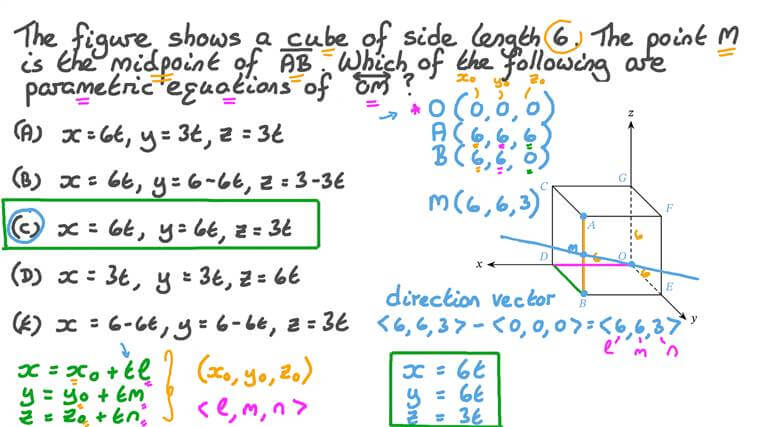 The figure shows a cube of side length 6. The point M
is the midpoint of AB. Which of the following are
parametric equations of OM?
x₀ y₀ z₀
* O (0, 0, 0)
A (6, 6, 6)
B (6, 6, 0)
(A) x = 6t, y = 3t, z = 3t
(B) x = 6t, y = 6-6t, z = 3-3t
M (6, 6, 3)
(C) x = 6t, y = 6t, z = 3t
(D) x = 3t, y = 3t, z = 6t
(E) x = 6-6t, y = 6-6t, z = 3t
z
C G
F
A
6
M 6
x D O
6
E
B
y
direction vector
<6, 6, 3> - <0, 0, 0> = <6, 6, 3>
l m n
x = x₀ + tl
y = y₀ + tm
z = z₀ + tn
(x₀, y₀, z₀)
<l, m, n>
x = 6t
y = 6t
z = 3t